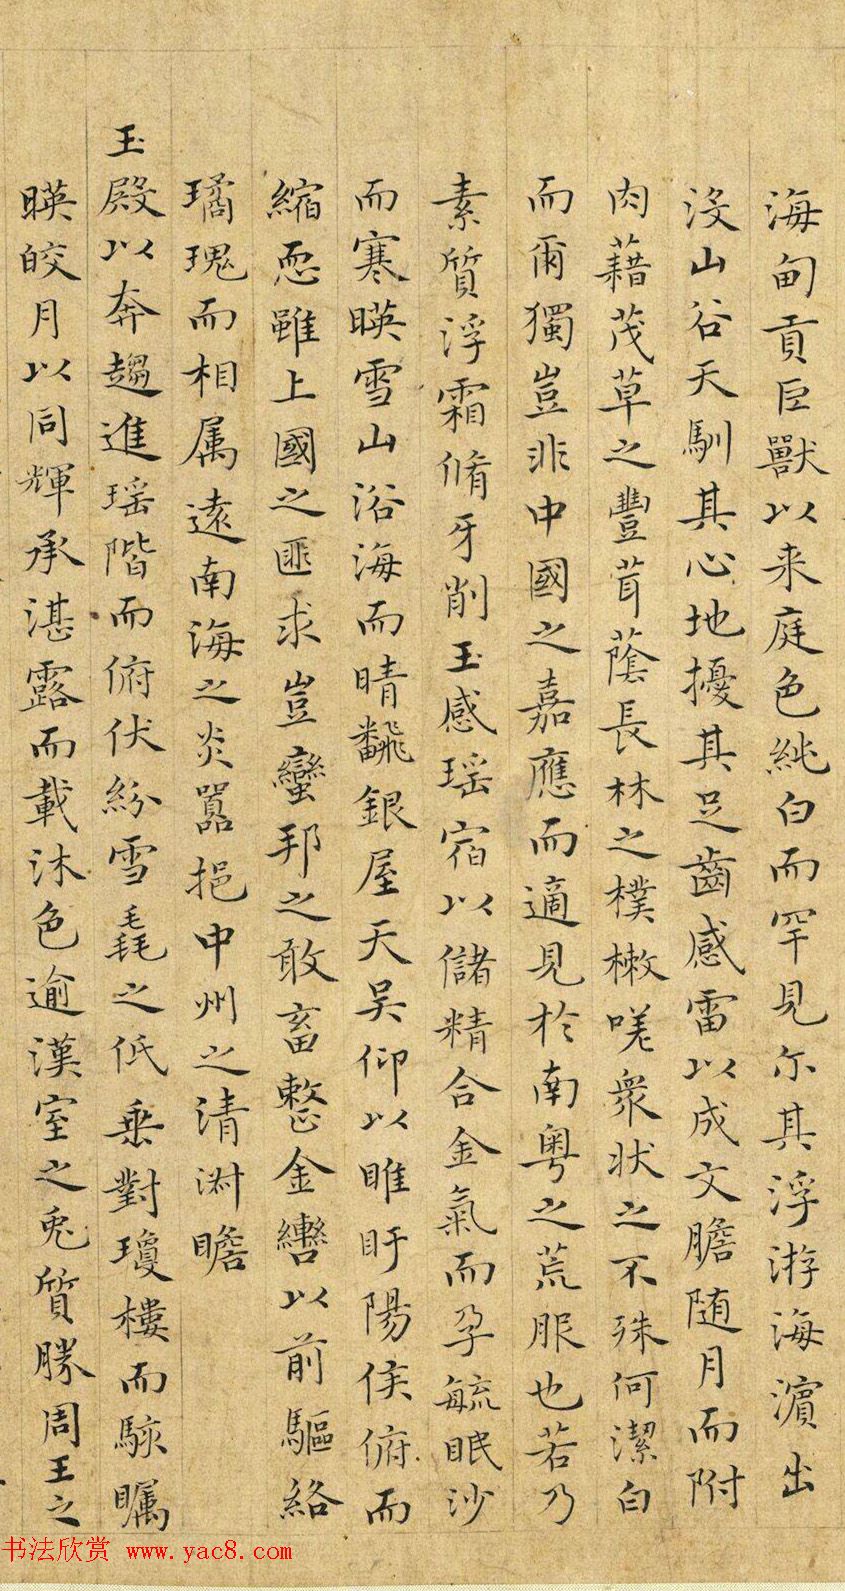 海甸貢巨獸以来庭色純白而罕見尔其浮游海濵出
沒山谷天馴其心地擾其足齒感雷以成文膽随月而附
肉藉茂草之豐茸蔭長林之樸樕嗟衆状之不殊何潔白
而爾獨豈非中國之嘉應而適見於南粤之荒服也若乃
素質浮霜脩牙削玉感瑶宿以儲精合金氣而孕毓眠沙
而寒暎雪山浴海而晴飜銀屋天吴仰以睢盱陽侯俯而
縮恧雖上國之匪求豈蠻邦之敢畜整金轡以前驅絡
璚瑰而相属遠南海之炎囂挹中州之清淑瞻
玉殿以奔趨進瑶階而俯伏紛雪毳之低垂對瓊樓而駭矚
暎皎月以同輝承湛露而載沐色逾漢室之兎質勝周王之
书法欣赏 www.yac8.com